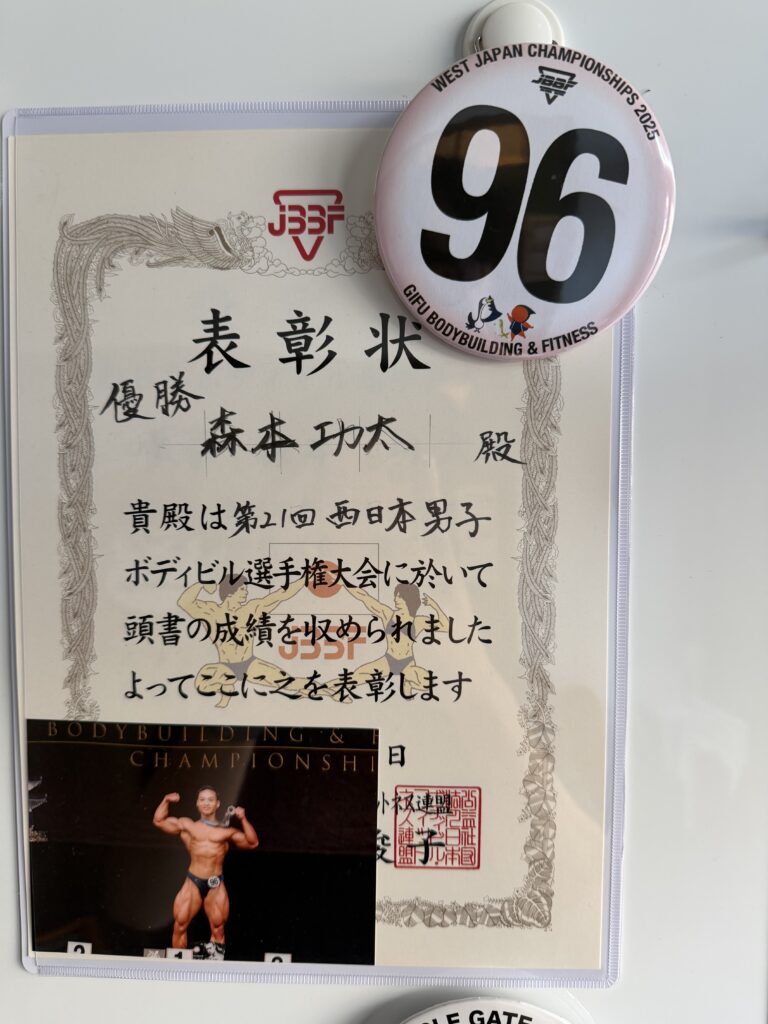 WEST JAPAN CHAMPIONSHIPS 2025
JBBF
96
GIFU BODYBUILDING & FITNESS
JBBF
表彰状
優勝
森本 功太 殿
貴殿は第21回 西日本男子
ボディビル選手権大会に於いて
頭書の成績を収められました
よってここに之を表彰します
JBBF
日
トネス連盟
子
BODYBUILDING & F
CHAMPIONSHI
2
1
LE GATE